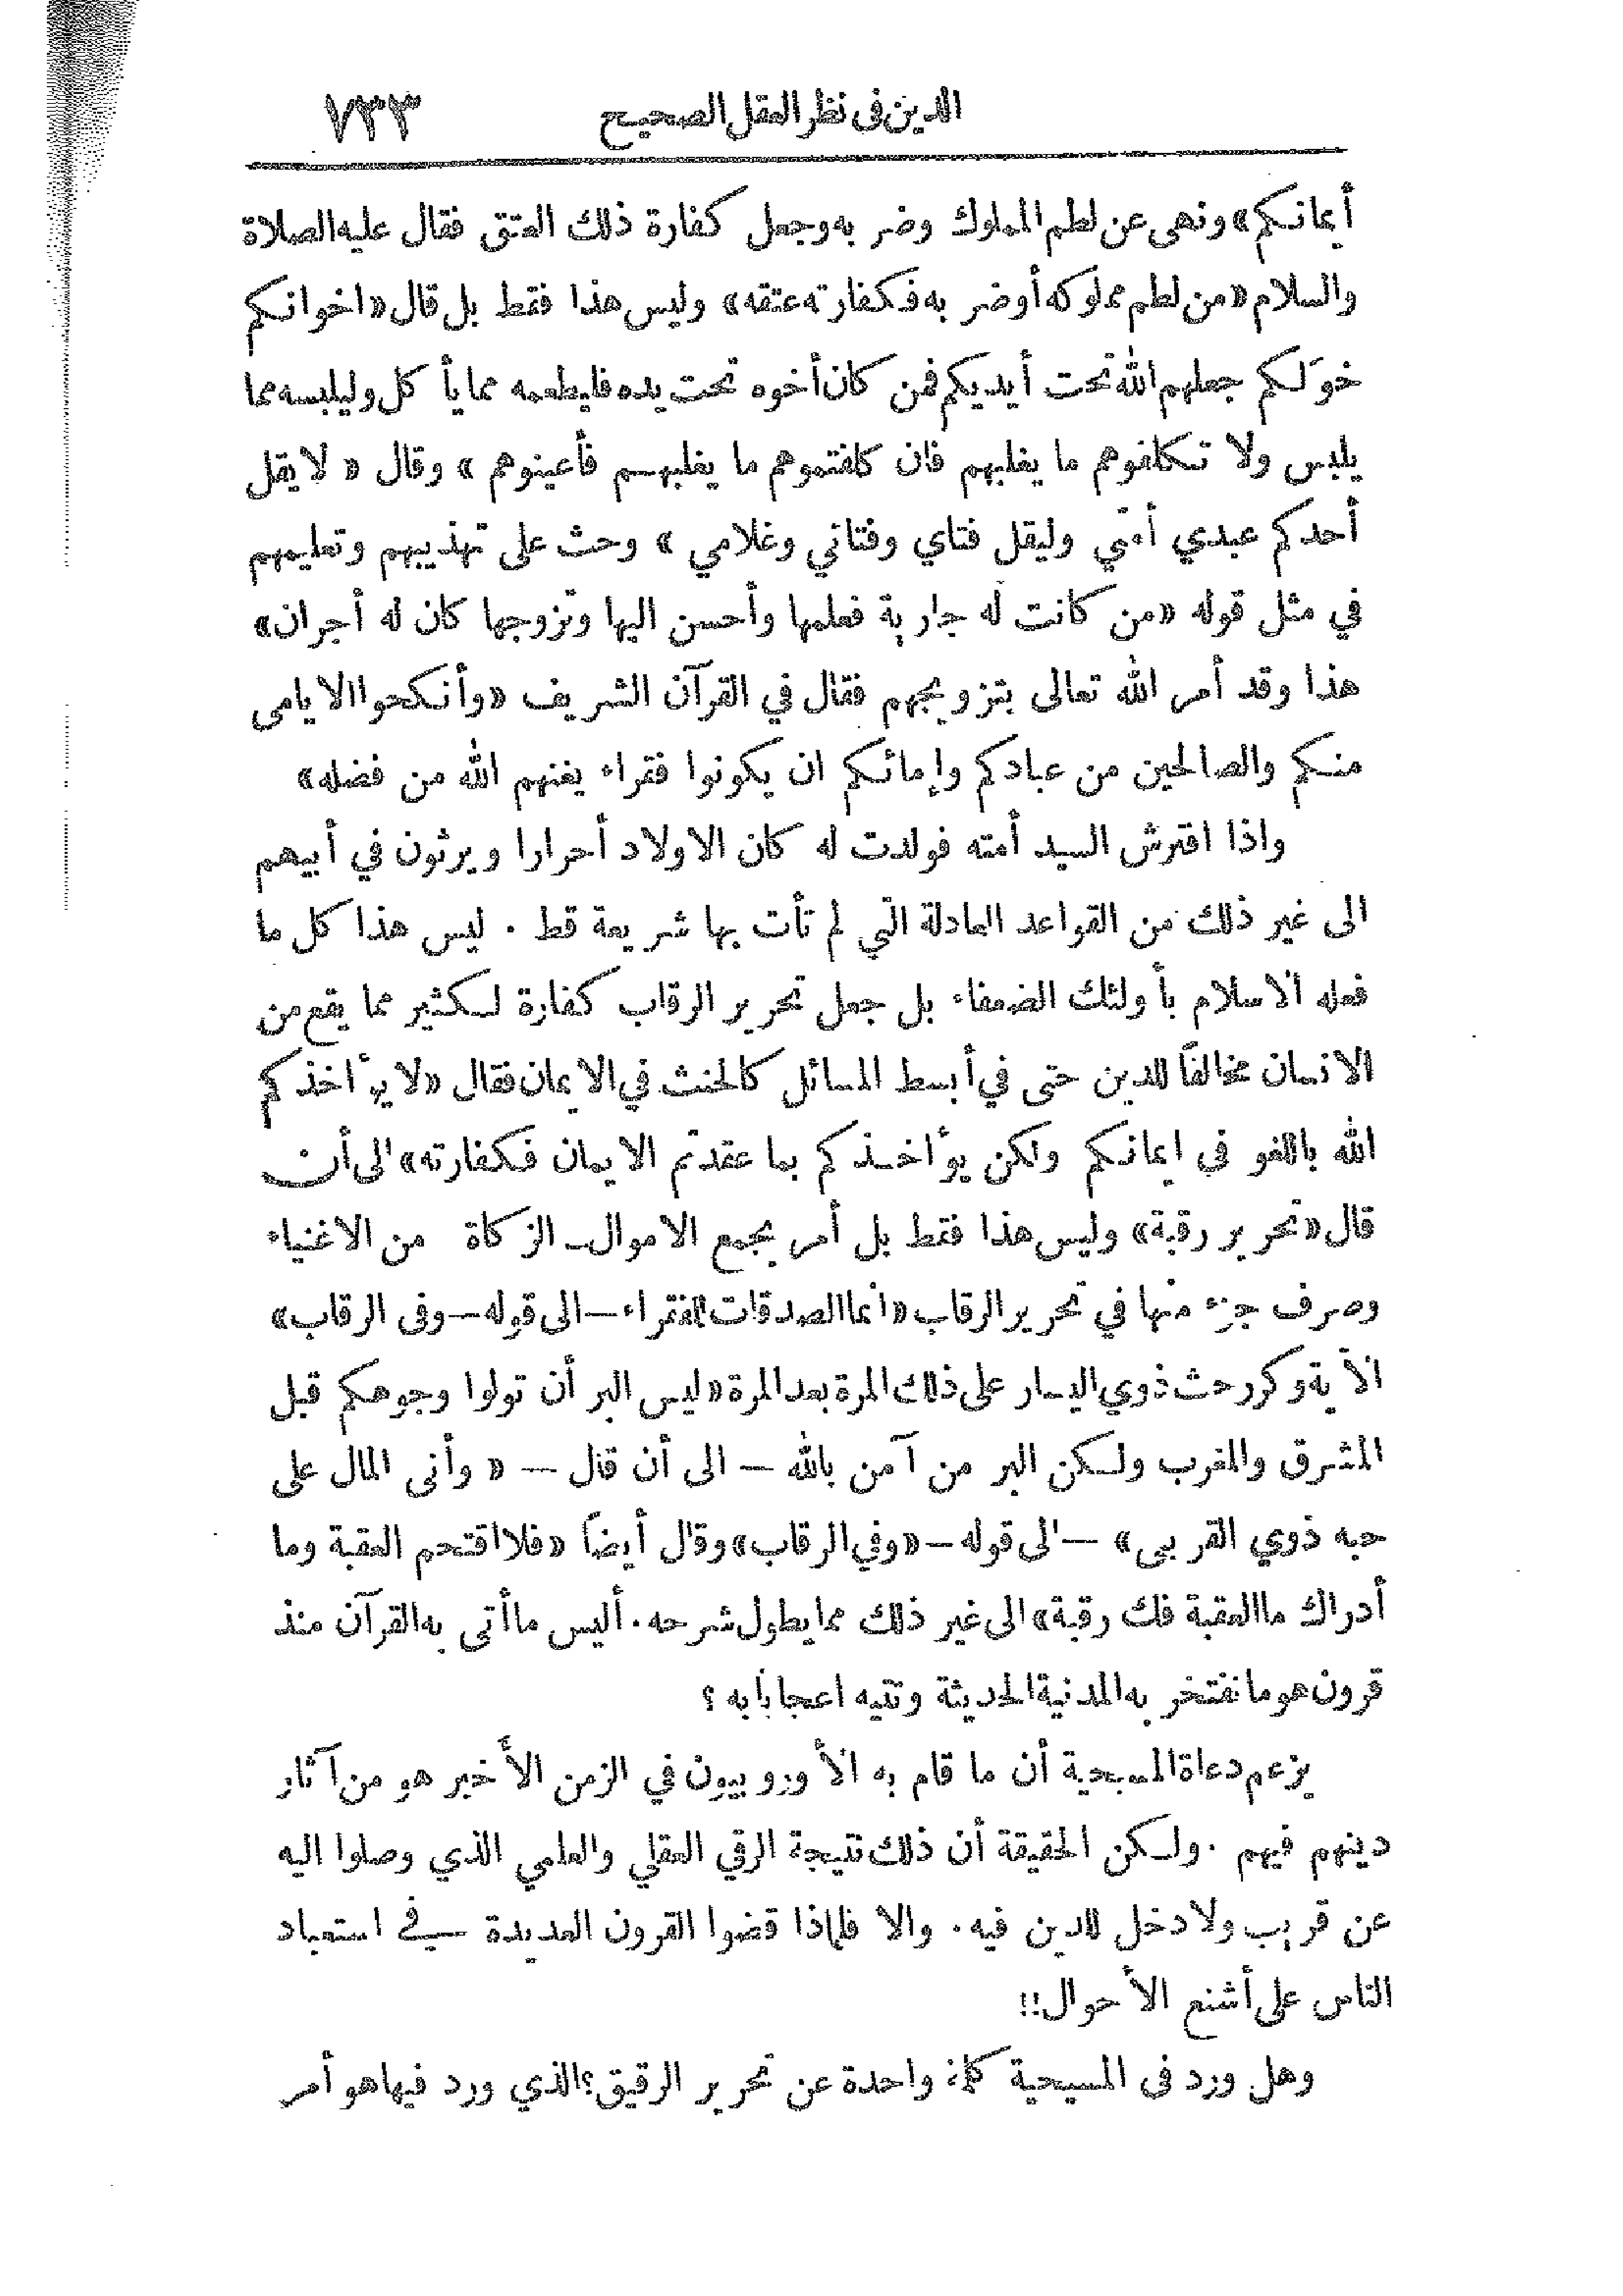 الدين فى نظر العقل الصحيح ٧٣٣
أيمانكم» ونهى عن لطم المملوك وضر به وجعل كفارة ذلك العتق فقال عليه الصلاة
والسلام «من لطم مملوكه أوضر به فكفارته عتقه» وليس هذا فقط بل قال «اخوانكم
خوَلكم جعلهم الله تحت أيديكم فمن كان أخوه تحت يده فليطعمه مما يأكل وليلبسه مما
يلبس ولا تكلفوهم ما يغلبهم فان كلفتموهم ما يغلبهم فأعينوهم» وقال «لا يقل
أحدكم عبدي أمتي وليقل فتاي وفتاتي وغلامي» وحث على تهذيبهم وتعليمهم
في مثل قوله «من كانت له جارية فعلمها وأحسن اليها وتزوجها كان له أجران»
هذا وقد أمر الله تعالى بتزويجهم فقال في القرآن الشريف «وأنكحوا الايامى
منكم والصالحين من عبادكم وإمائكم ان يكونوا فقراء يغنهم الله من فضله»
واذا افترش السيد أمته فولدت له كان الاولاد أحرارا ويرثون في أبيهم
الى غير ذلك من القواعد العادلة التي لم تأت بها شريعة قط . ليس هذا كل ما
فعله الاسلام بأولئك الضعفاء بل جعل تحرير الرقاب كفارة لكثير مما يقع من
الانسان مخالفاً للدين حتى في أبسط المسائل كالحنث في الايمان فقال «لا يؤاخذكم
الله باللغو في ايمانكم ولكن يؤاخذكم بما عقدتم الايمان فكفارته» الى أن
قال «تحرير رقبة» وليس هذا فقط بل أمر بجمع الاموال ـ الزكاة من الاغنياء
وصرف جزء منها في تحرير الرقاب «انما الصدقات للفقراء — الى قوله — وفى الرقاب»
الآية وكرر حث ذوي اليسار على ذلك المرة بعد المرة «ليس البر أن تولوا وجوهكم قبل
المشرق والمغرب ولكن البر من آمن بالله — الى أن قال — «وأتى المال على
حبه ذوي القربى» — الى قوله — «وفي الرقاب» وقال أيضاً «فلا اقتحم العقبة وما
أدراك ما العقبة فك رقبة» الى غير ذلك مما يطول شرحه . أليس ما أتى به القرآن منذ
قرون هو ما تفتخر به المدنية الحديثة وتتيه اعجابا به ؟
يزعم دعاة المسيحية أن ما قام به الأوروبيون في الزمن الأخير هو من آثار
دينهم فيهم . ولكن الحقيقة أن ذلك نتيجة الرقي العقلي والعلمي الذي وصلوا اليه
عن قريب ولا دخل للدين فيه . والا فلماذا قضوا القرون العديدة في استعباد
الناس على أشنع الأحوال!!
وهل ورد فى المسيحية كلمة واحدة عن تحرير الرقيق؟ الذي ورد فيها هو أمر